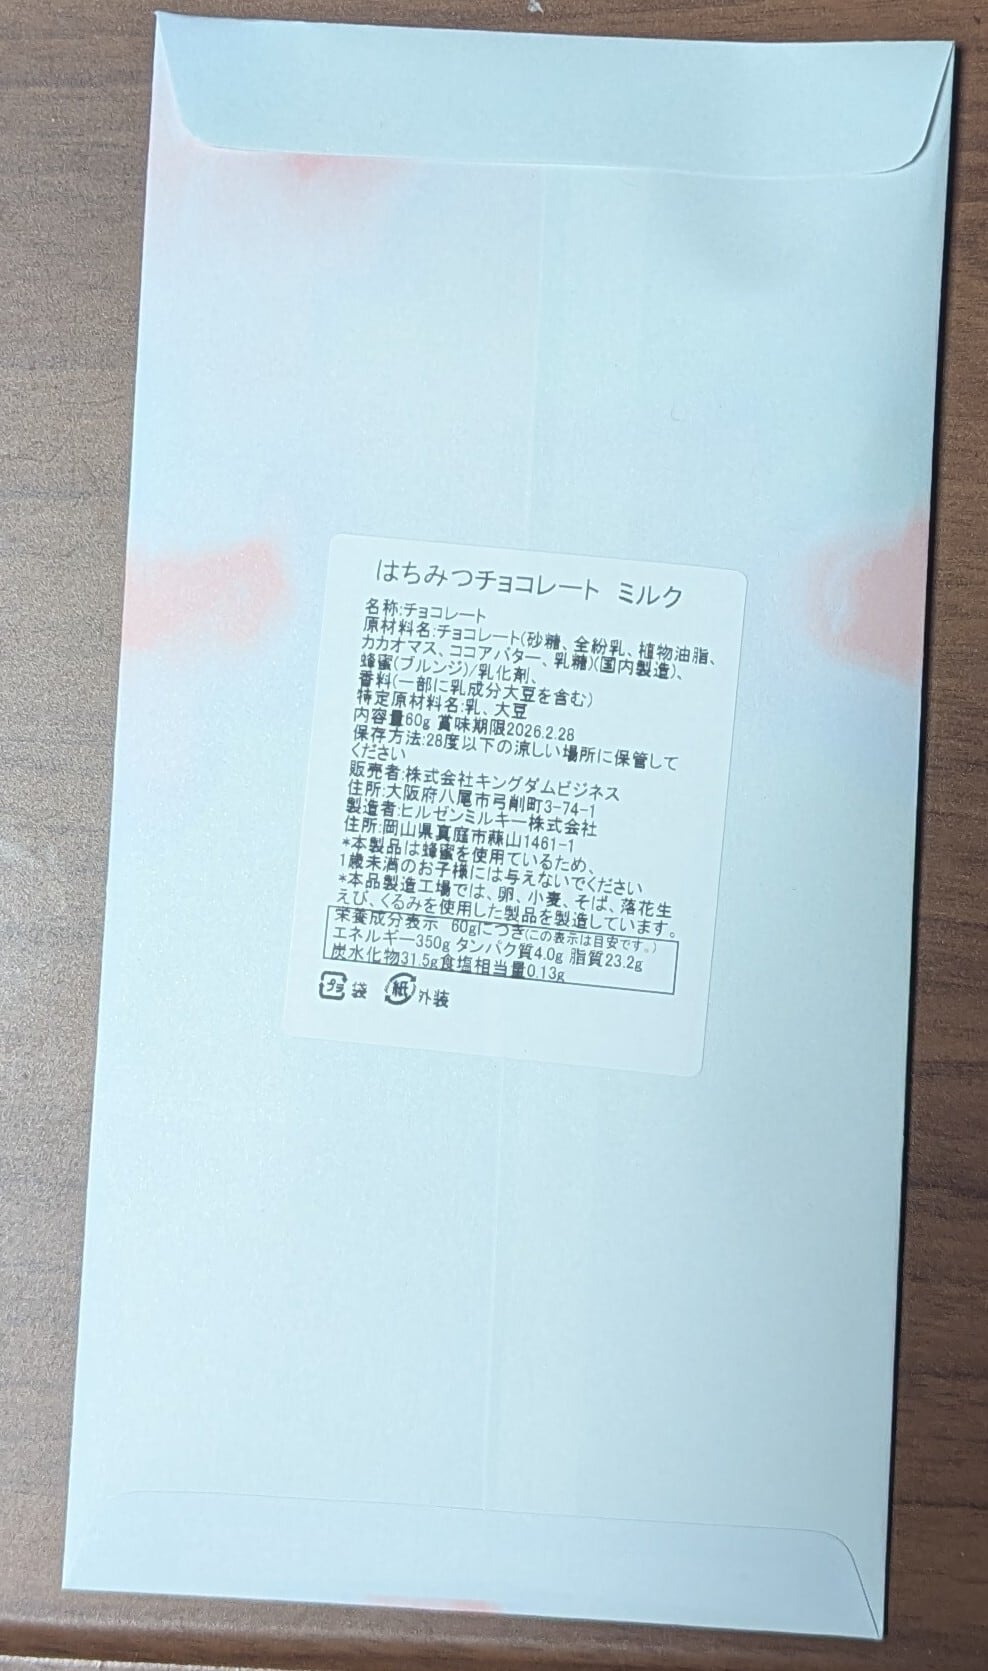 はちみつチョコレート ミルク
名称:チョコレート
原材料名:チョコレート(砂糖、全粉乳、植物油脂、
カカオマス、ココアバター、乳糖)(国内製造)、
蜂蜜(ブルンジ)/乳化剤、
香料(一部に乳成分大豆を含む)
特定原材料名:乳、大豆
内容量60g 賞味期限2026.2.28
保存方法:28度以下の涼しい場所に保管して
ください
販売者:株式会社キングダムビジネス
住所:大阪府八尾市弓削町3-74-1
製造者:ヒルゼンミルキー株式会社
住所:岡山県真庭市蒜山1461-1
*本製品は蜂蜜を使用ているため、
1歳未満のお子様には与えないでください
*本品製造工場では、卵、小麦、そば、落花生
えび、くるみを使用した製品を製造しています。
栄養成分表示 60gにつき(この表示は目安です。)
エネルギー350g タンパク質4.0g 脂質23.2g
炭水化物31.5g食塩相当量0.13g
プラ 袋 紙 外装